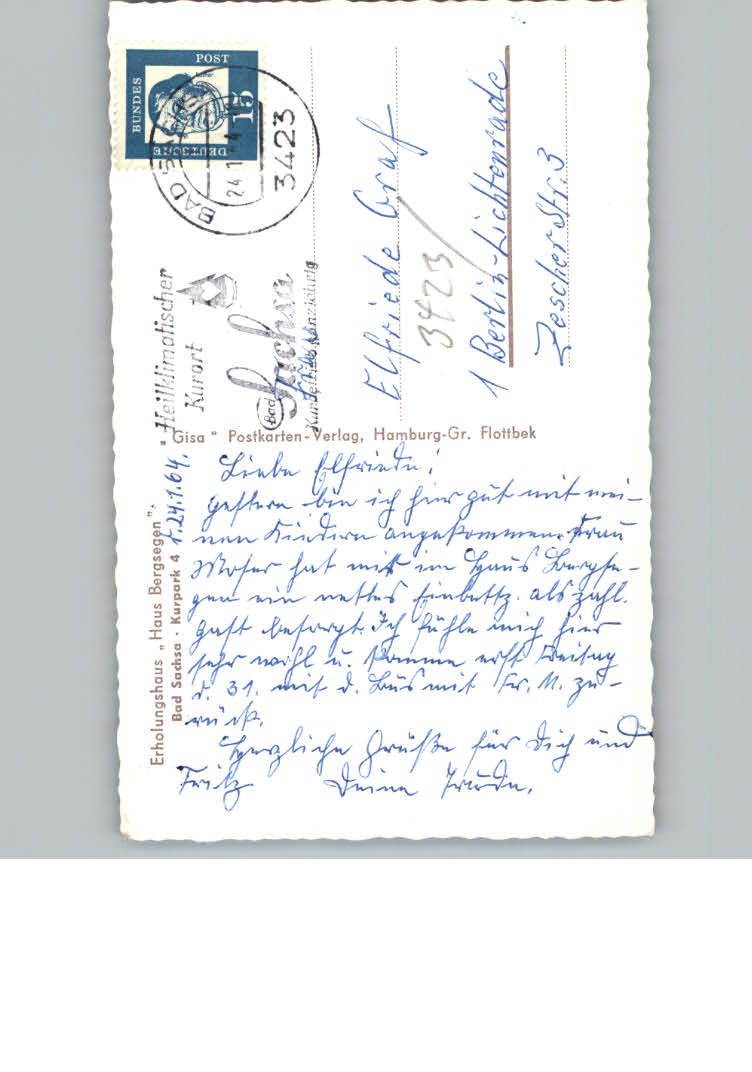 DEUTSCHE
BUNDES
POST
15
BAD SACHSA
24.1.64
3423
Heilklimatischer
Kurort
Bad Sachsa
Frau
Elfriede Graf
3423
1 Berlin-Lichtenrade
Zescher Str. 3
"Gisa" Postkarten-Verlag, Hamburg-Gr. Flottbek
Erholungshaus „Haus Bergsegen"
Bad Sachsa · Kurpark 4
d. 24.1.64.
Liebe Elfriede!
Gestern bin ich hier gut mit mei-
nen Kindern angekommen. Frau
Moser hat mir im Haus Bergse-
gen ein nettes Einbettz. als zahl.
Gast besorgt. Ich fühle mich hier
sehr wohl u. komme erst Freitag
d. 31. mit d. Bus mit Fr. M. zu-
rück.
Herzliche Grüße für Dich und
Fritz Deine Trude.